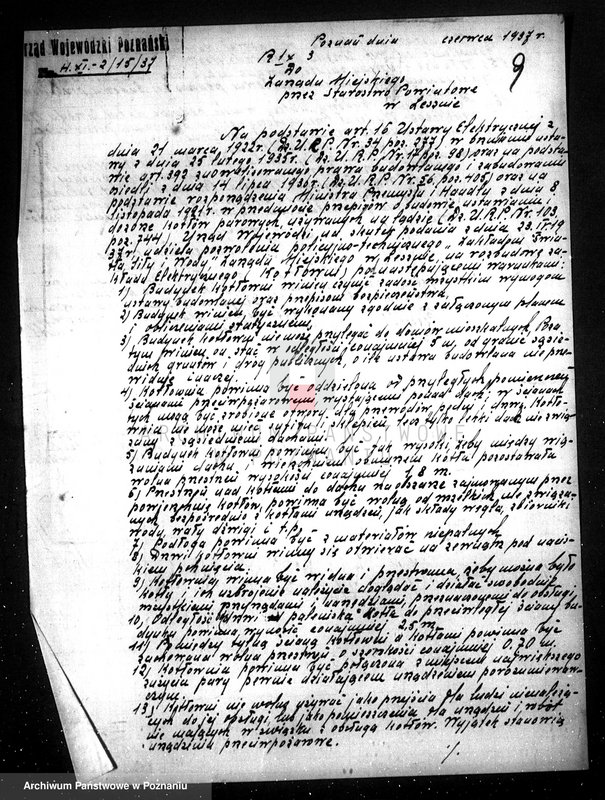 rząd Wojewódzki Poznański
H.VI.-2/15/37
Poznań dnia czerwca 1937 r.
9
Do
Zarządu Miejskiego
przez Starostwo Powiatowe
w Lesznie
Na podstawie art. 16 Ustawy Elektrycznej z
dnia 21 marca 1922r. (Dz.U.R.P. Nr. 34 poz. 277) w brzmieniu usta-
wy z dnia 25 lutego 1935r. (Dz.U.R.P. Nr. 17 poz. 98) oraz na podsta-
wie art. 392 prawa budowlanego i zabudowaniu
osiedli z dnia 14 lipca 1936r. (Dz.U.R.P. Nr. 56. poz. 405) oraz na
podstawie rozporządzenia Ministra Przemysłu i Handlu z dnia 8
listopada 1921r. w przedmiocie przepisów o budowie, ustawianiu i
dozorze kotłów parowych, używanych na lądzie (Dz.U.R.P. Nr. 103
poz. 744), Urząd Wojewódzki na skutek podania z dnia 23. IV. 19
37r. udziela pozwolenia policyjno-technicznego "Zakładom Świa-
tła, Siły i Wody" Zarządu Miejskiego w Lesznie, na rozbudowę za-
kładu Elektrycznego (Kotłowni) pod następującymi warunkami:
1) Budynek kotłowni winien czynić zadość wszystkim wymogom
ustawy budowlanej oraz przepisom bezpieczeństwa.
2) Budynek winien być wykonany zgodnie z załączonym planem
i obliczeniami statycznemi.
3) Budynek kotłowni nie może przylegać do domów mieszkalnych. Poza
tym winien on stać w odległości conajmniej 5 m, od granic sąsie-
dnich gruntów i dróg publicznych, o ile ustawa budowlana nie prze-
widuje inaczej.
4) Kotłownia powinna być oddzielona od przyległych pomieszczeń
ścianami przeciwpożarowemi wystającymi ponad dach; w ścianach
tych mogą być zrobione otwory dla przewodów, pędni i innz. Kotło-
wnia nie może mieć sufitu i sklepień, lecz tylko lekki dach niezwią-
zany z sąsiedniemi dachami.
5) Budynek kotłowni powinien być tak wysoki, żeby między wią-
zaniami dachu i wierzchem obmurza kotła pozostawała
wolna przestrzeń wysokości conajmniej 1,8 m.
6) Przestrzeń nad kotłami do dachu na obszarze zajmowanym przez
powierzchnię kotłów, powinna być wolną od wszelkich, nie związa-
nych bezpośrednio z kotłami urządzeń, jak składy węgla, zbiorniki
wody, wały, dźwigi i t.p.
7) Podłoga powinna być z materiałów niepalnych.
8) Drzwi kotłowni winny się otwierać na zewnątrz pod nacis-
kiem pchnięcia.
9) Kotłownia winna być widna i przestronna, żeby można było
kotły i ich uzbrojenie należycie doglądać i działać swobodnie
wszystkiemi przyrządami i narzędziami, przeznaczonymi do obsługi.
10) Odległość paleniska kotła do przeciwległej ściany bu-
dynku powinna wynosić conajmniej 2,5 m.
11) Pomiędzy tylną ścianą kotłowni a kotłami powinna być
zachowana wolna przestrzeń o szerokości conajmniej 0,70 m.
12) Kotłownia powinna być połączona z miejscem największego
zużycia pary pewnie działającem urządzeniem porozumiewaw-
czym.
13) Kotłowni nie wolno używać jako przejścia dla ludzi nienależą-
cych do jej obsługi, lub jako pomieszczenia dla urządzeń i robót
nie mających w związku z obsługą kotłów. Wyjątek stanowią
urządzenia przeciwpożarowe.
./.
ARCHIWA PAŃSTWOWE
Archiwum Państwowe w Poznaniu